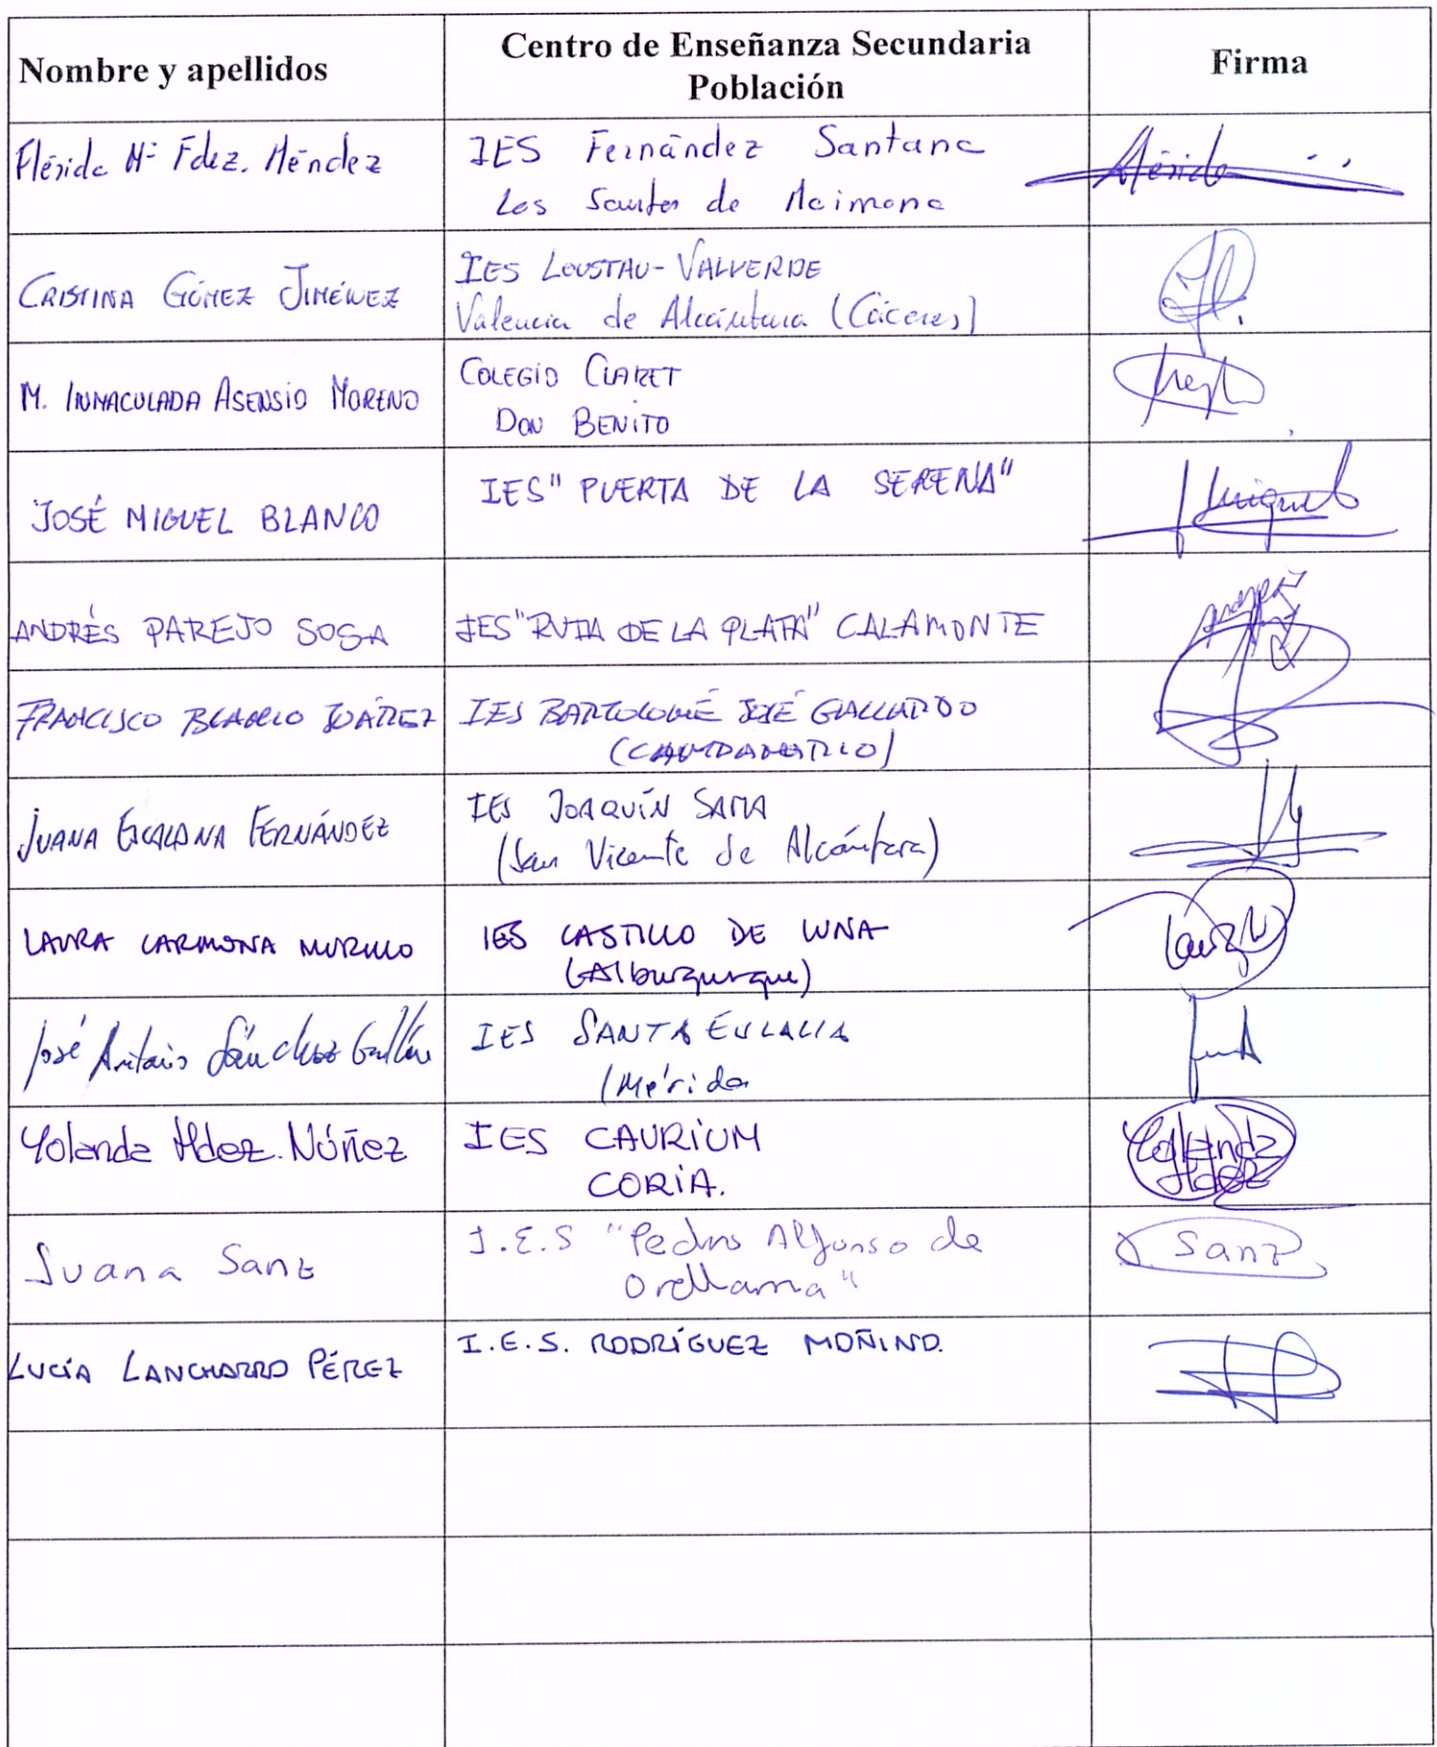 Nombre y apellidos
Centro de Enseñanza Secundaria
Población
Firma
Flérida Mª Fdez. Méndez
IES Fernández Santana
Los Santos de Maimona
Flérida
CRISTINA GÓMEZ JIMÉNEZ
IES LOUSTAU-VALVERDE
Valencia de Alcántara (Cáceres)
M. INMACULADA ASENSIO MORENO
COLEGIO CLARET
DON BENITO
JOSÉ MIGUEL BLANCO
IES "PUERTA DE LA SERENA"
JMiguel
ANDRÉS PAREJO SOSA
IES "RUTA DE LA PLATA" CALAMONTE
FRANCISCO BLANCO JUÁREZ
IES BARTOLOMÉ JOSÉ GALLARDO
(CAMPANARIO)
JUANA ESCALONA FERNÁNDEZ
IES JOAQUÍN SAMA
(San Vicente de Alcántara)
LAURA CARMONA MURILLO
IES CASTILLO DE LUNA
(Alburquerque)
José Antonio Sánchez Guillén
IES SANTA EULALIA
(Mérida
Yolanda Hdez. Núñez
IES CAURIUM
CORIA.
Yolanda
Hdez
Juana Sanz
I.E.S "Pedro Alfonso de
Orellana"
Sanz
LUCÍA LANCHARRO PÉREZ
I.E.S. RODRÍGUEZ MOÑINO.